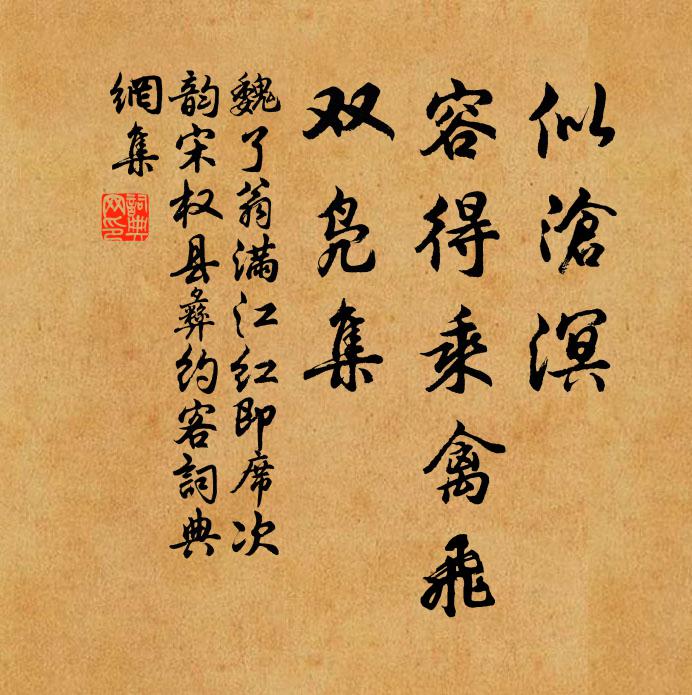 似滄溟
容得乘禽飛
双凫集
魏了翁满江红即席次
韵宋权县彝约客詞典
網集
詞典网印